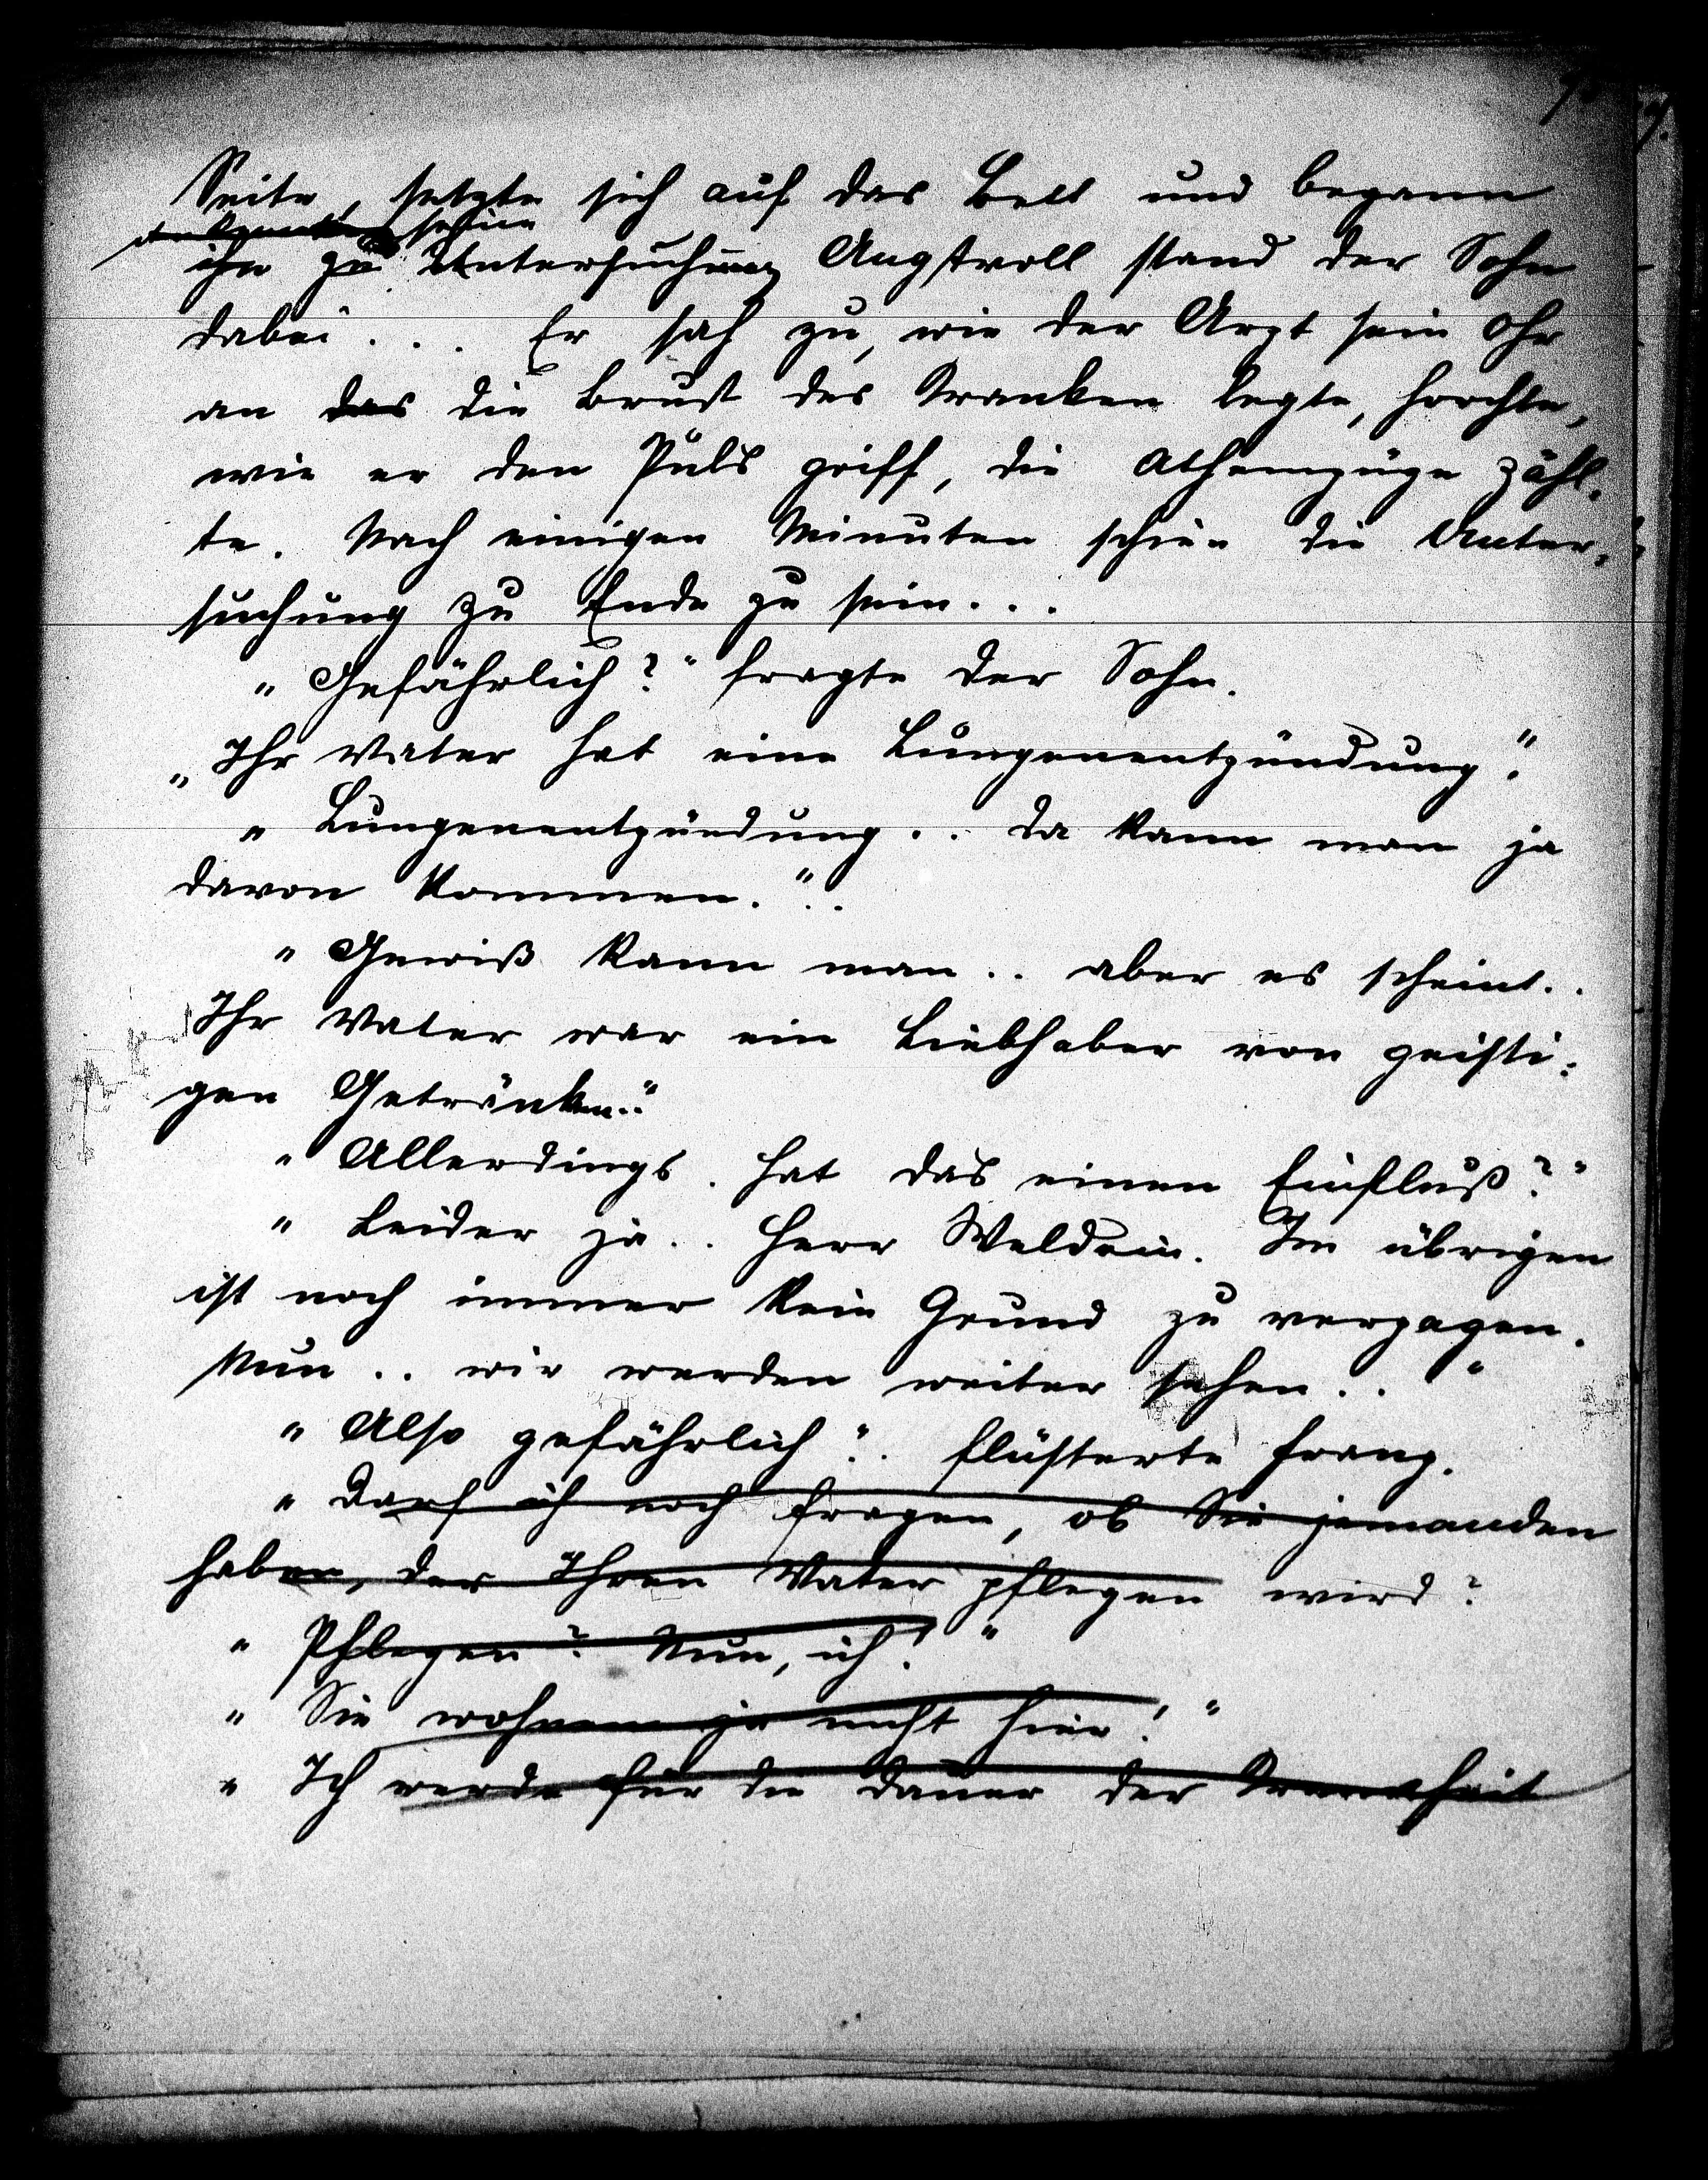 Seite, setzte sich auf das Bett und begann
seine
ihn zu Untersuchung Angstvoll stand der Sohn
dabei . . . Er sah zu, wie der Arzt sein Ohr
an das die Brust des Kranken legte, horchte,
wie er den Puls griff, die Athemzüge zähl-
te. Nach einigen Minuten schien die Unter-
suchung zu Ende zu sein. . .
„Gefährlich?" fragte der Sohn.
„Ihr Vater hat eine Lungenentzündung."
„Lungenentzündung . . da kann man ja
davon kommen." . .
„Gewiß kann man . . aber es scheint . .
Ihr Vater war ein Liebhaber von geisti-
gen Getränken . ."
„Allerdings. hat das einen Einfluß?"
„Leider ja . . Herr Weldein. Im übrigen
ist noch immer kein Grund zu verzagen.
Nun . . wir werden weiter sehen . . "
„Also gefährlich" . . flüsterte Franz.
„Darf ich noch fragen, ob Sie jemanden
haben, der Ihren Vater pflegen wird?
„Pflegen? Nun, ich!"
„Sie wohnen ja nicht hier!"
„Ich werde für die Dauer der Krankheit